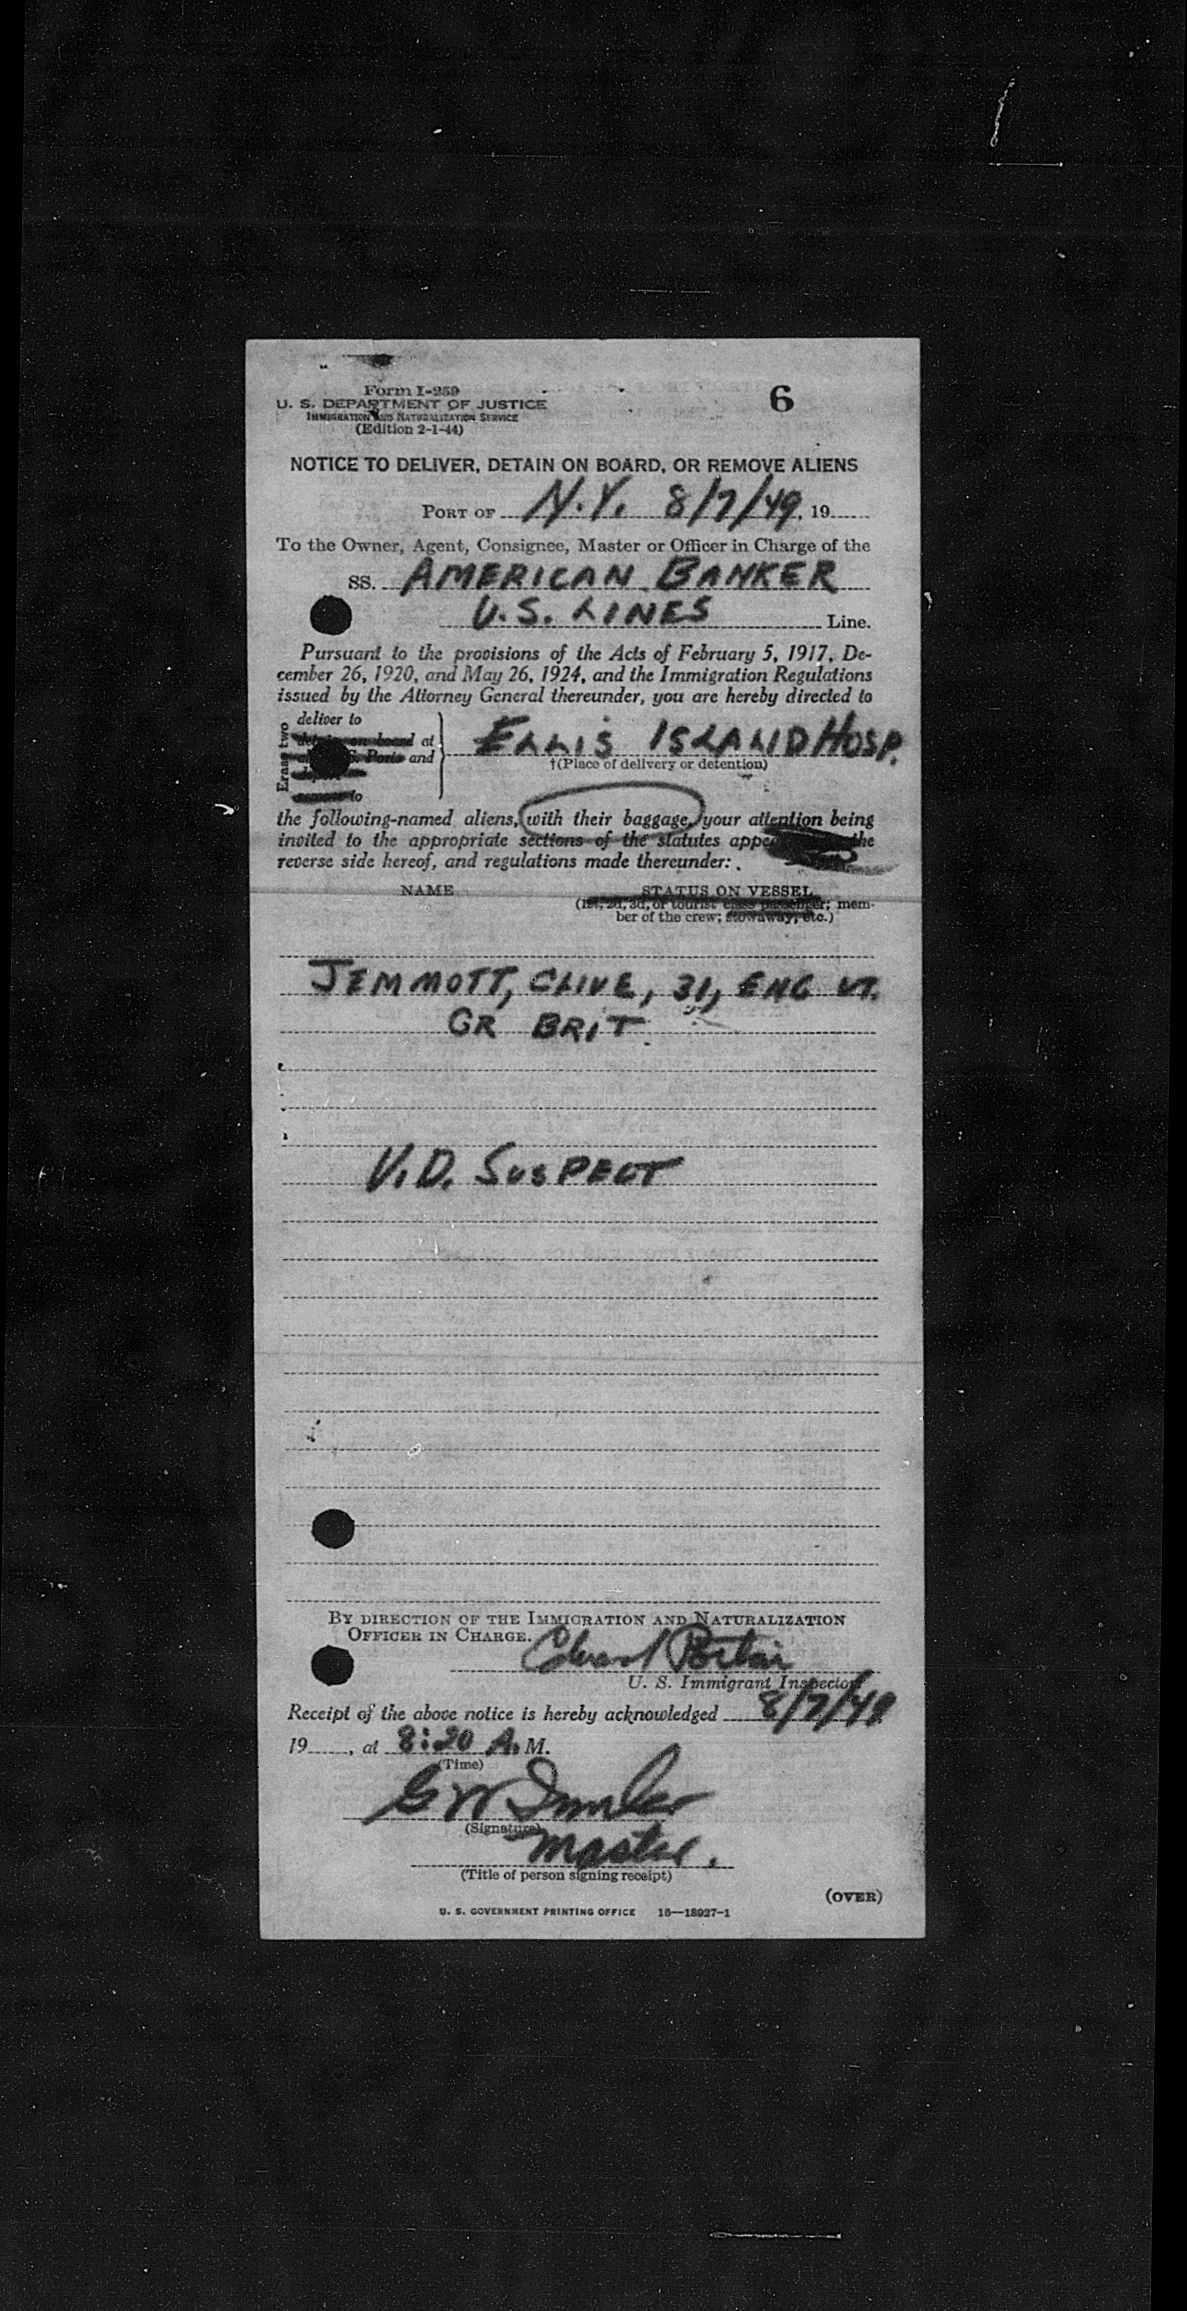 Form I-259
U. S. DEPARTMENT OF JUSTICE
IMMIGRATION AND NATURALIZATION SERVICE
(Edition 2-1-44)
6
NOTICE TO DELIVER, DETAIN ON BOARD, OR REMOVE ALIENS
PORT OF N.Y. 8/7/49, 19
To the Owner, Agent, Consignee, Master or Officer in Charge of the
SS. AMERICAN BANKER
U.S. LINES Line.
Pursuant to the provisions of the Acts of February 5, 1917, De-
cember 26, 1920, and May 26, 1924, and the Immigration Regulations
issued by the Attorney General thereunder, you are hereby directed to
Erase two
deliver to
detain on board at
S. Ports and
to
ELLIS ISLAND HOSP.
†(Place of delivery or detention)
the following-named aliens, with their baggage, your attention being
invited to the appropriate sections of the statutes the
reverse side hereof, and regulations made thereunder:
NAME STATUS ON VESSEL
(1st, 2d, 3d, or tourist class passenger; mem-
ber of the crew; stowaway, etc.)
JEMMOTT, CLIVE, 31, ENG UT.
GR BRIT.
V.D. SUSPECT
BY DIRECTION OF THE IMMIGRATION AND NATURALIZATION
OFFICER IN CHARGE.
Edward
U. S. Immigrant Inspector
Receipt of the above notice is hereby acknowledged 8/7/49
19, at 8:20 A.M.
(Time)
G W
(Signature)
Master.
(Title of person signing receipt)
(OVER)
U. S. GOVERNMENT PRINTING OFFICE 16—18927-1